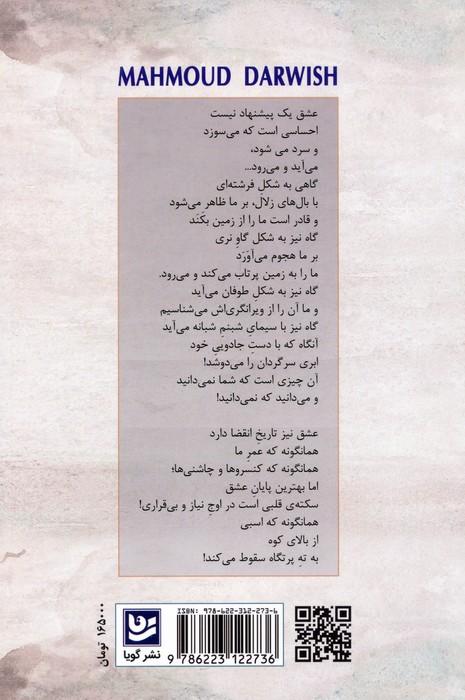 MAHMOUD DARWISH
عشق یک پیشنهاد نیست
احساسی است که می‌سوزد
و سرد می شود،
می‌آید و می‌رود...
گاهی به شکلِ فرشته‌ای
با بال‌های زلال، بر ما ظاهر می‌شود
و قادر است ما را از زمین بکَنَد
گاه نیز به شکل گاوِ نری
بر ما هجوم می‌آورَد
ما را به زمین پرتاب می‌کند و می‌رود.
گاه نیز به شکلِ طوفان می‌آید
و ما آن را از ویرانگری‌اش می‌شناسیم
گاه نیز با سیمایِ شبنمِ شبانه می‌آید
آنگاه که با دستِ جادوییِ خود
ابری سرگردان را می‌دوشد!
آن چیزی است که شما نمی‌دانید
و می‌دانید که نمی‌دانید!
عشق نیز تاریخِ انقضا دارد
همانگونه که عمرِ ما
همانگونه که کنسروها و چاشنی‌ها؛
اما بهترین پایانِ عشق
سکته‌ی قلبی است در اوجِ نیاز و بی‌قراری!
همانگونه که اسبی
از بالای کوه
به تهِ پرتگاه سقوط می‌کند!
ISBN: 978-622-312-273-6
9 786223 122736
نشر گویا
۱۶۵۰۰۰ تومان